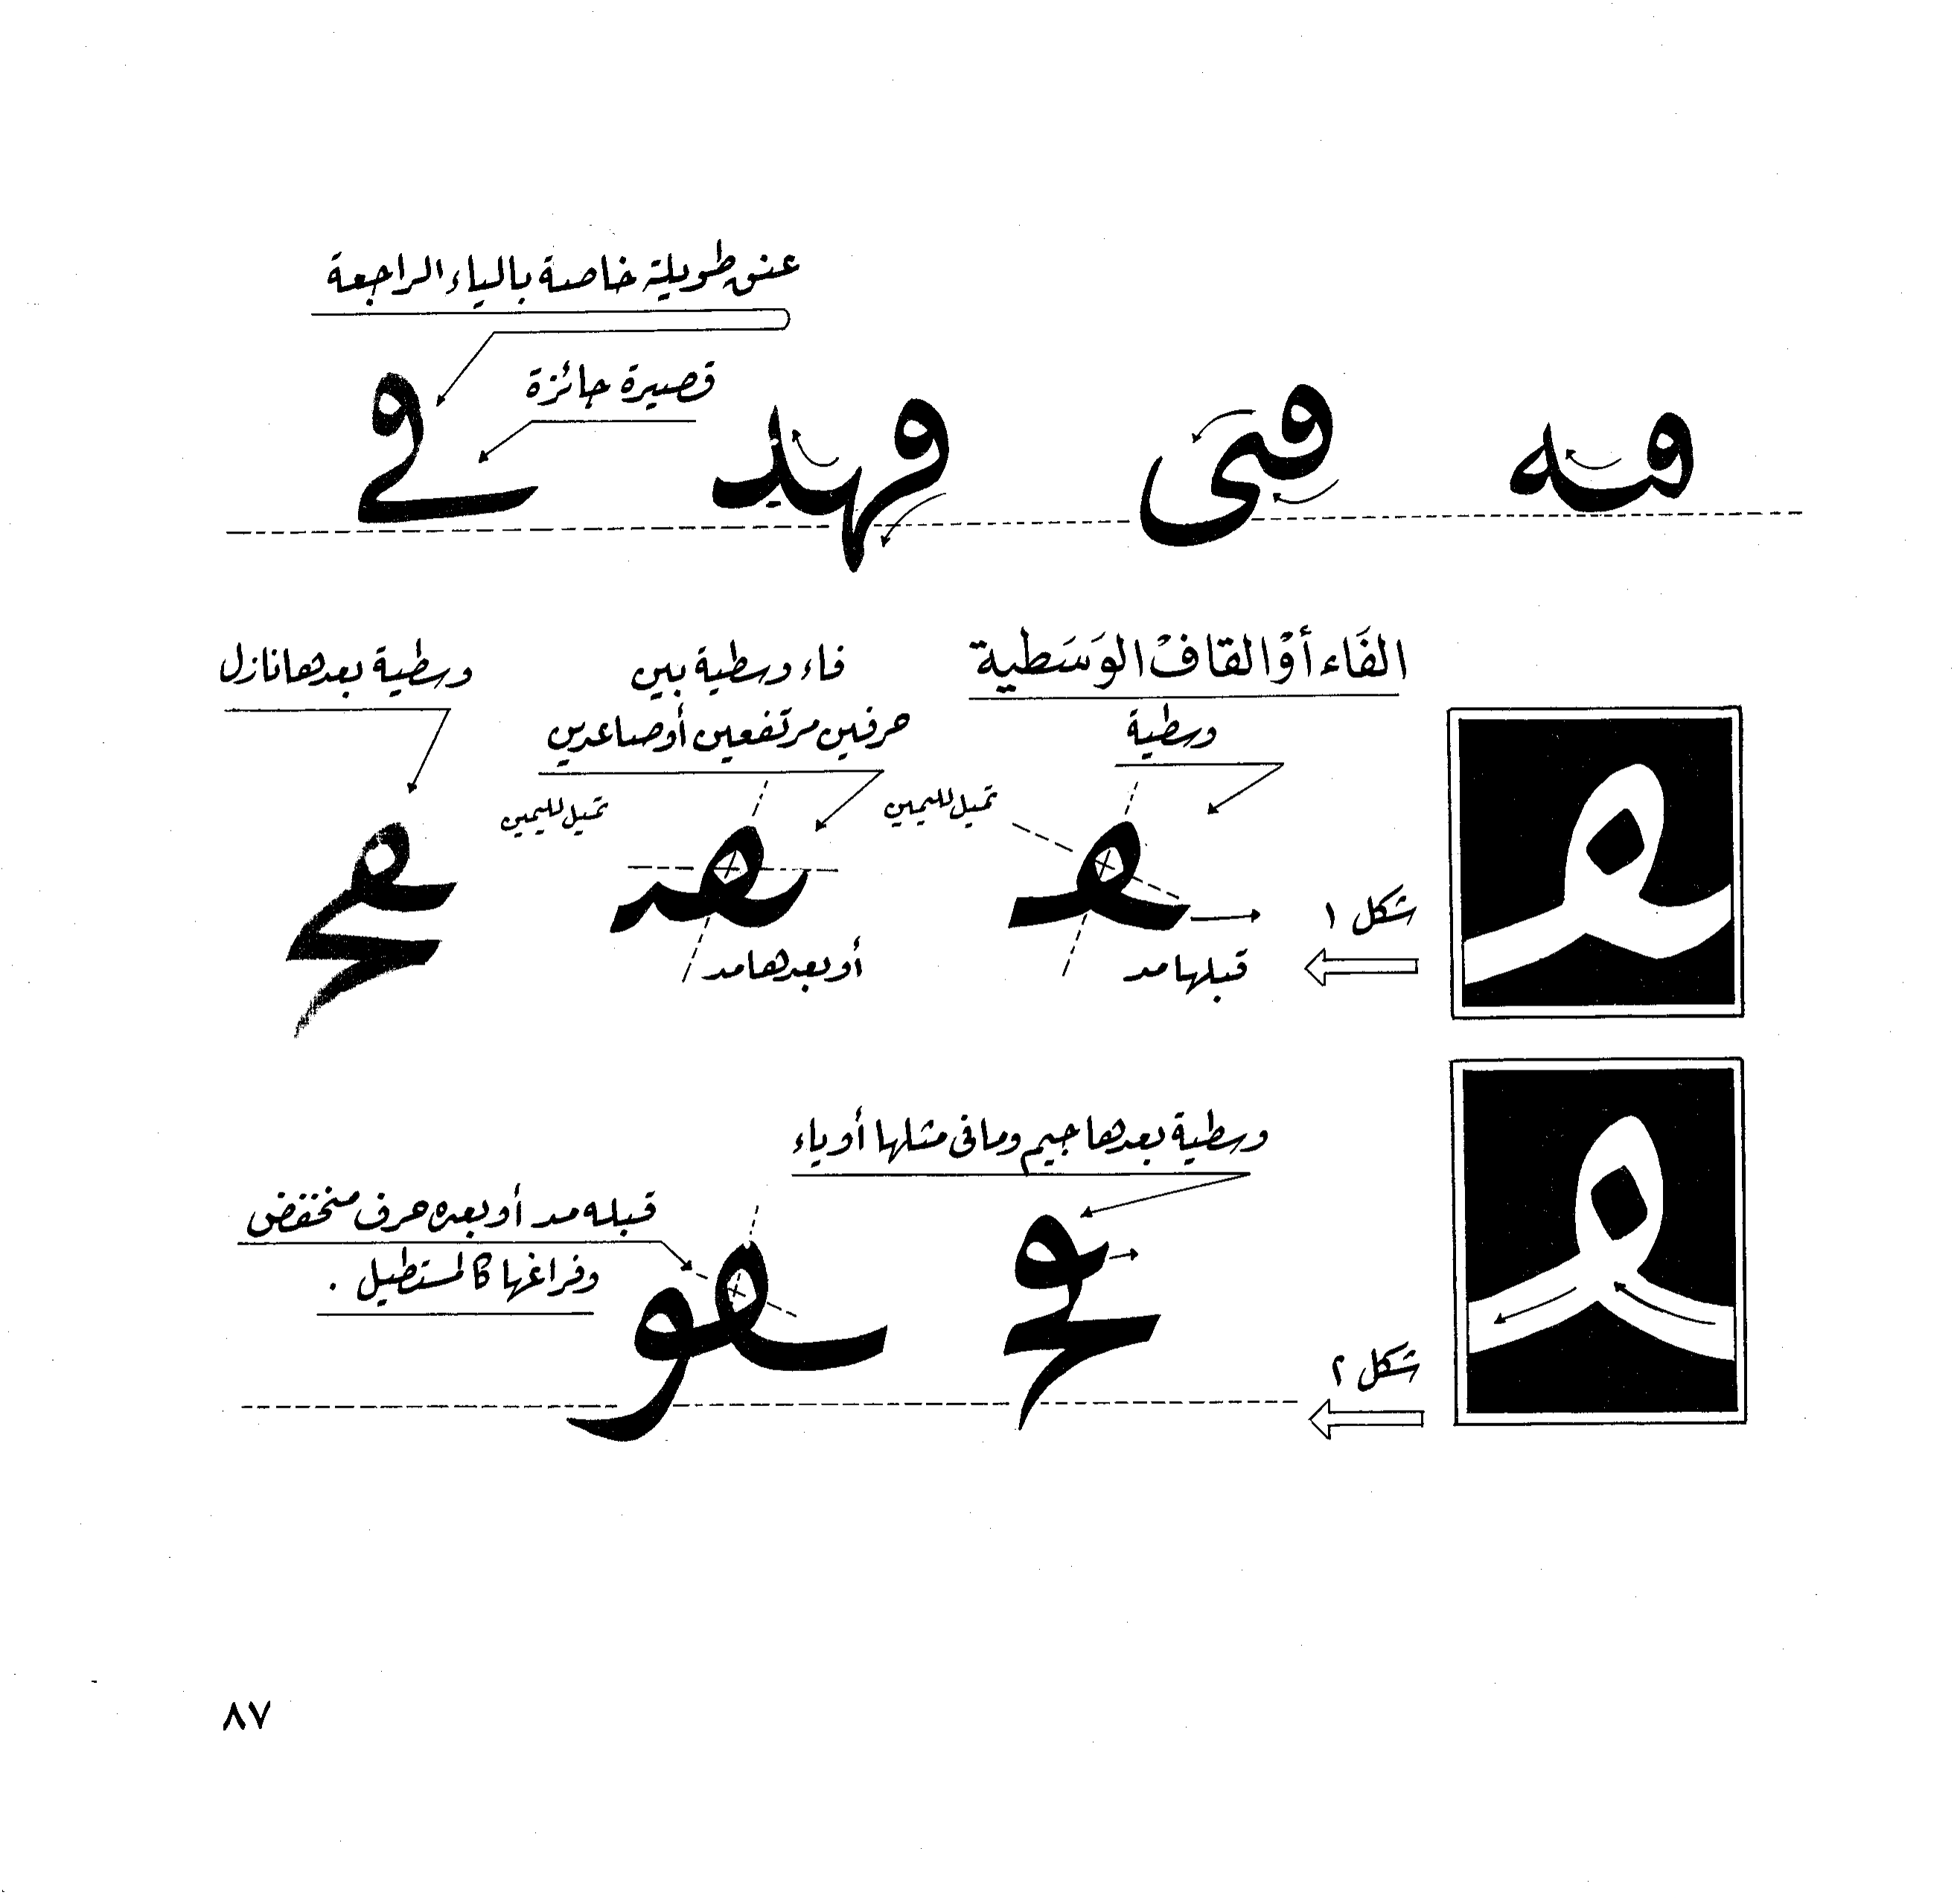 عنق طويلة خاصة بالياء الراجعة
قصيرة جائزة
فه فى فهد في
الفَاء أوْ القافْ الوَسَطية
فاء وسطية بين
حرفين مرتفعين أوصاعدين
وسطية بعدها نازل
وسطية
تميل لليمين
تميل لليمين
شكل ١
قبلها مد
أو بعدها مد
وسطية بعدها جيم وما فى مثلها أو ياء
قبله مد أو بعده حرف منخفض
وفراغها كالمستطيل .
شكل ٢
٨٧